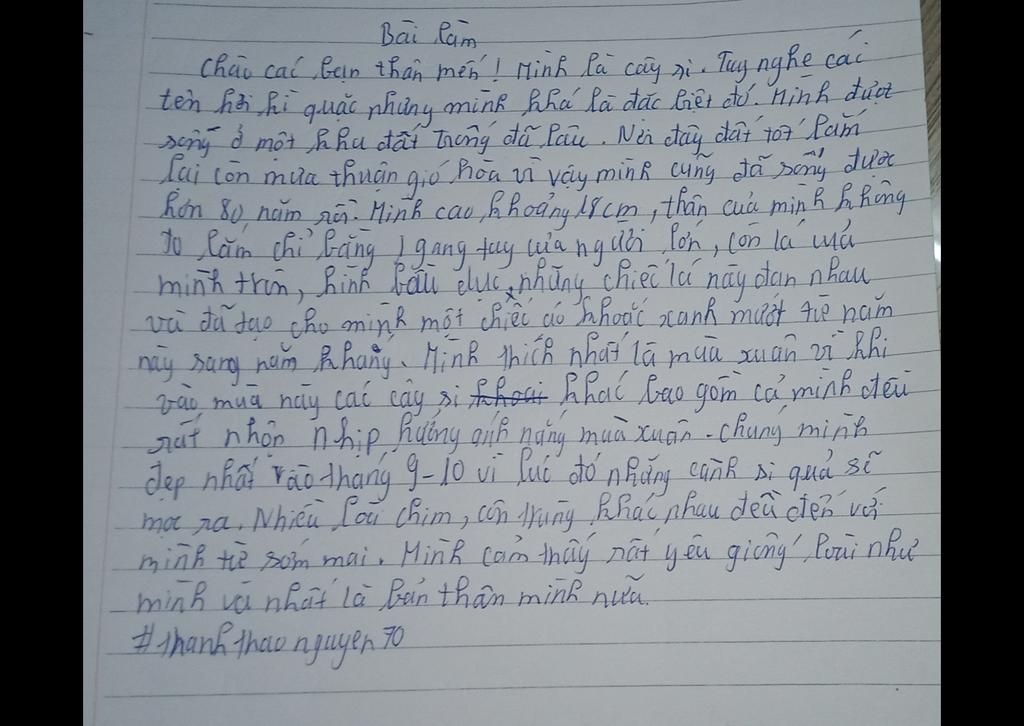 Bài làm
Chào các bạn thân mến! Mình là cây si. Tuy nghe cái
tên hơi kì quặc nhưng mình khá là đặc biệt đó. Mình được
sống ở một khu đất trống đã lâu. Nơi đây đất tốt lắm
lại còn mưa thuận gió hòa vì vậy mình cũng đã sống được
hơn 80 năm rồi. Mình cao khoảng 18cm, thân của mình không
to lắm chỉ bằng 1 gang tay của người lớn, còn lá của
mình tròn, hình bầu dục, những chiếc lá này đan nhau
và đã tạo cho mình một chiếc áo khoác xanh mướt từ năm
này sang năm khang. Mình thích nhất là mùa xuân vì khi
vào mùa này các cây si khác bao gồm cả mình đều
rất nhộn nhịp hướng ánh nắng mùa xuân. Chúng mình
đẹp nhất vào tháng 9-10 vì lúc đó những cành si quả sẽ
mọc ra. Nhiều loài chim, côn trùng khác nhau đều đến với
mình từ sớm mai. Mình cảm thấy rất yêu giống loài như
mình và nhất là bản thân mình nữa.
#thanhthaonguyen70